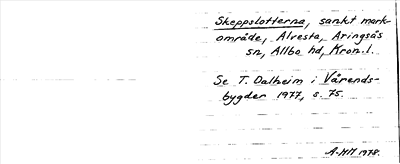 Skeppslotterna, sankt mark-
område, Alvesta, Aringsås
sn, Allbo hd, Kron.l.
Se T. Dalheim i Värends-
bygder 1977, s. 75.
A-MM 1978.